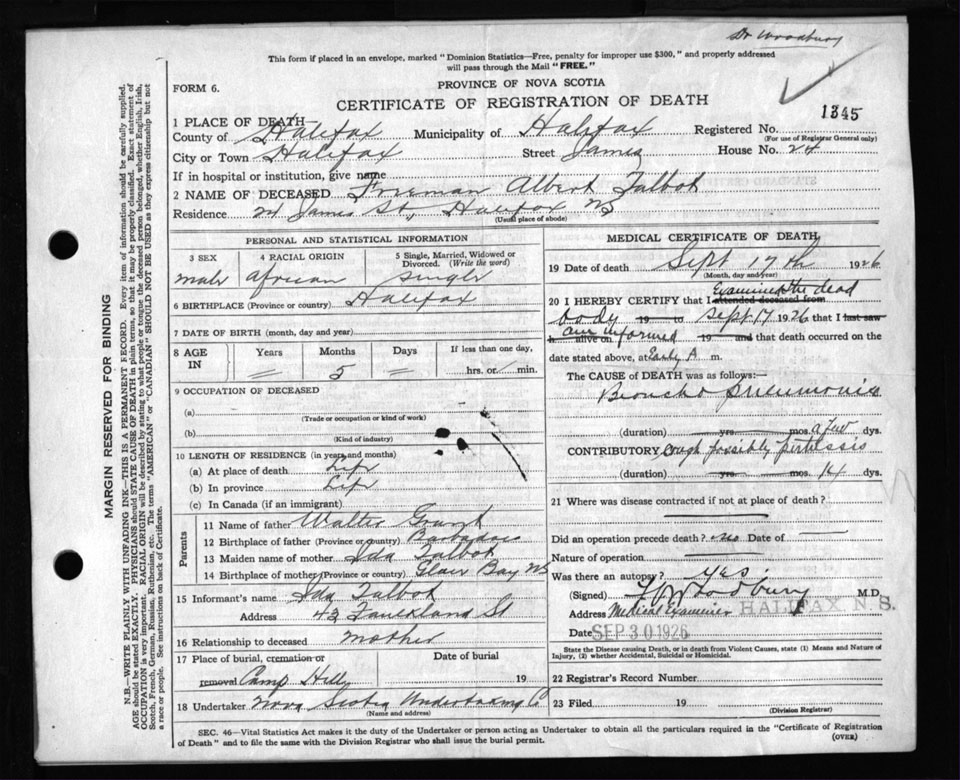 Dr Woodbury
This form if placed in an envelope, marked "Dominion Statistics—Free, penalty for improper use $300," and properly addressed
will pass through the Mail "FREE."
PROVINCE OF NOVA SCOTIA
FORM 6.
CERTIFICATE OF REGISTRATION OF DEATH
1345
1 PLACE OF DEATH
County of Halifax Municipality of Halifax Registered No.
(For use of Registrar General only)
City or Town Halifax Street James House No. 24
If in hospital or institution, give name
2 NAME OF DECEASED Freeman Albert Talbot
Residence James St, Halifax NS
(Usual place of abode)
PERSONAL AND STATISTICAL INFORMATION
3 SEX 4 RACIAL ORIGIN 5 Single, Married, Widowed or
Divorced. (Write the word)
male African single
6 BIRTHPLACE (Province or country) Halifax
7 DATE OF BIRTH (month, day and year)
8 AGE IN Years Months Days If less than one day,
= 5 — hrs. or min.
9 OCCUPATION OF DECEASED
(a)
(Trade or occupation or kind of work)
(b)
(Kind of industry)
10 LENGTH OF RESIDENCE (in years and months)
(a) At place of death Life
(b) In province Life
(c) In Canada (if an immigrant)
Parents
11 Name of father Walter Grant
12 Birthplace of father (Province or country) Barbados
13 Maiden name of mother Ida Talbot
14 Birthplace of mother (Province or country) Bay NS
15 Informant's name Ida Talbot
Address 43 Faulkland St
16 Relationship to deceased mother
17 Place of burial, cremation or Date of burial
removal Camp Hill 19
18 Undertaker Nova Scotia Undertaking Co
(Name and address)
MEDICAL CERTIFICATE OF DEATH
19 Date of death Sept 17th 1926
(Month, day and year)
Examined the dead
20 I HEREBY CERTIFY that I attended deceased from
body 19 to Sept 17 1926 that I last saw
am informed
h alive on 19 and that death occurred on the
date stated above, at Early A m.
The CAUSE of DEATH was as follows:—
Broncho pneumonia
(duration) yrs. mos. a few dys.
CONTRIBUTORY Cough possibly pertussis
(duration) yrs. mos. 14 dys.
21 Where was disease contracted if not at place of death?
Did an operation precede death? no Date of —
Nature of operation
Was there an autopsy? yes.
(Signed) Woodbury M.D.
Address Medical Examiner HALIFAX N.S.
Date SEP 30 1926
State the Disease causing Death, or in death from Violent Causes, state (1) Means and Nature of
Injury, (2) whether Accidental, Suicidal or Homicidal.
22 Registrar's Record Number
23 Filed 19
(Division Registrar)
SEC. 46—Vital Statistics Act makes it the duty of the Undertaker or person acting as Undertaker to obtain all the particulars required in the "Certificate of Registration
of Death" and to file the same with the Division Registrar who shall issue the burial permit. (OVER)
MARGIN RESERVED FOR BINDING
N.B.—WRITE PLAINLY WITH UNFADING INK—THIS IS A PERMANENT RECORD. Every item of information should be carefully supplied.
AGE should be stated EXACTLY. PHYSICIANS should STATE CAUSE OF DEATH in plain terms, so that it may be properly classified. Exact statement of
OCCUPATION is very important. RACIAL ORIGIN will be described by stating to what people or tongue the deceased person belonged, whether English, Irish,
Scotch, French, German, Russian, Ruthenian, etc. The terms "AMERICAN" or "CANADIAN" SHOULD NOT BE USED as they express citizenship but not
a race or people. See instructions on back of Certificate.